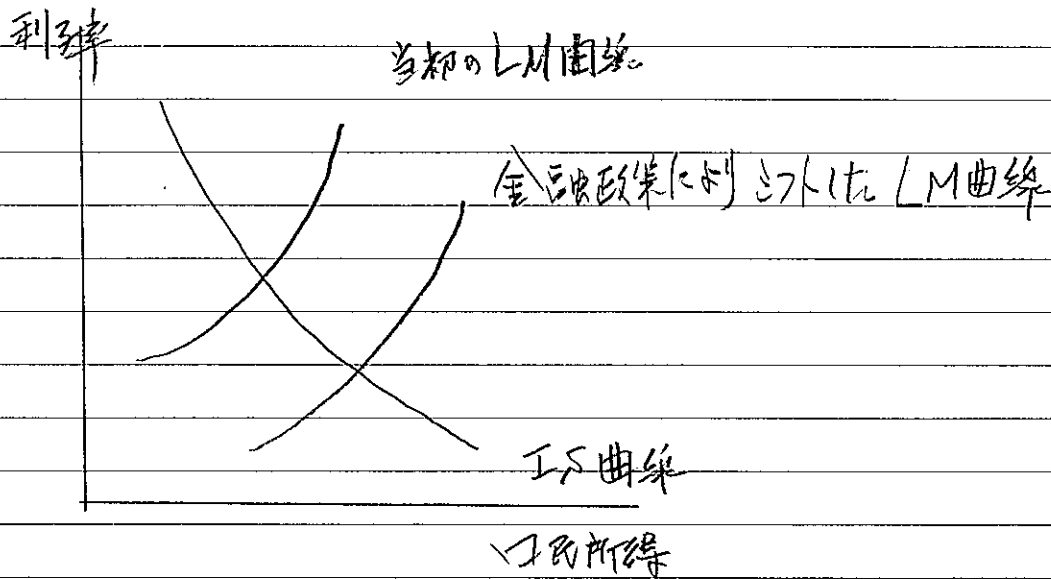 利子率
当初のLM曲線
金融政策によりシフトしたLM曲線
IS曲線
国民所得